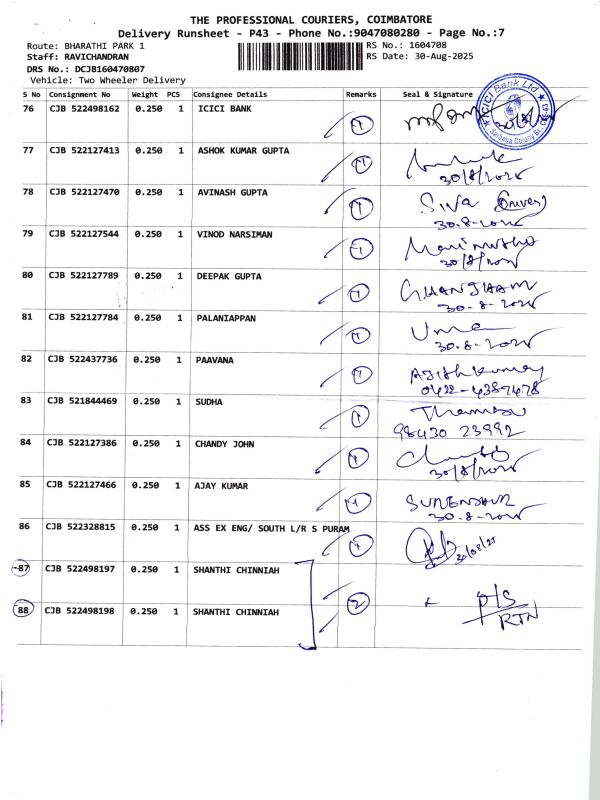 THE PROFESSIONAL COURIERS, COIMBATORE
Delivery Runsheet - P43 - Phone No.:9047080280 - Page No.:7
Route: BHARATHI PARK 1 RS No.: 1604708
Staff: RAVICHANDRAN RS Date: 30-Aug-2025
DRS No.: DCJB160470807
Vehicle: Two Wheeler Delivery
S No Consignment No Weight PCS Consignee Details Remarks Seal & Signature
76 CJB 522498162 0.250 1 ICICI BANK 1
ICICI Bank Ltd
77 CJB 522127413 0.250 1 ASHOK KUMAR GUPTA 1
30/8/2025
78 CJB 522127470 0.250 1 AVINASH GUPTA 1 Siva (Driver)
30.8-2025
79 CJB 522127544 0.250 1 VINOD NARSIMAN 1
30/8/2025
80 CJB 522127789 0.250 1 DEEPAK GUPTA 1 GHANSHAAM
30-8-2025
81 CJB 522127784 0.250 1 PALANIAPPAN 1 Uma
30.8-2025
82 CJB 522437736 0.250 1 PAAVANA 1 Ajith Kumar
0422-4387478
83 CJB 521844469 0.250 1 SUDHA 1
98430 23992
84 CJB 522127386 0.250 1 CHANDY JOHN 1
30/8/2025
85 CJB 522127466 0.250 1 AJAY KUMAR 1
30.8-2025
86 CJB 522328815 0.250 1 ASS EX ENG/ SOUTH L/R S PURAM 1
30/08/25
87 CJB 522498197 0.250 1 SHANTHI CHINNIAH
88 CJB 522498198 0.250 1 SHANTHI CHINNIAH 2 P/S
RTN